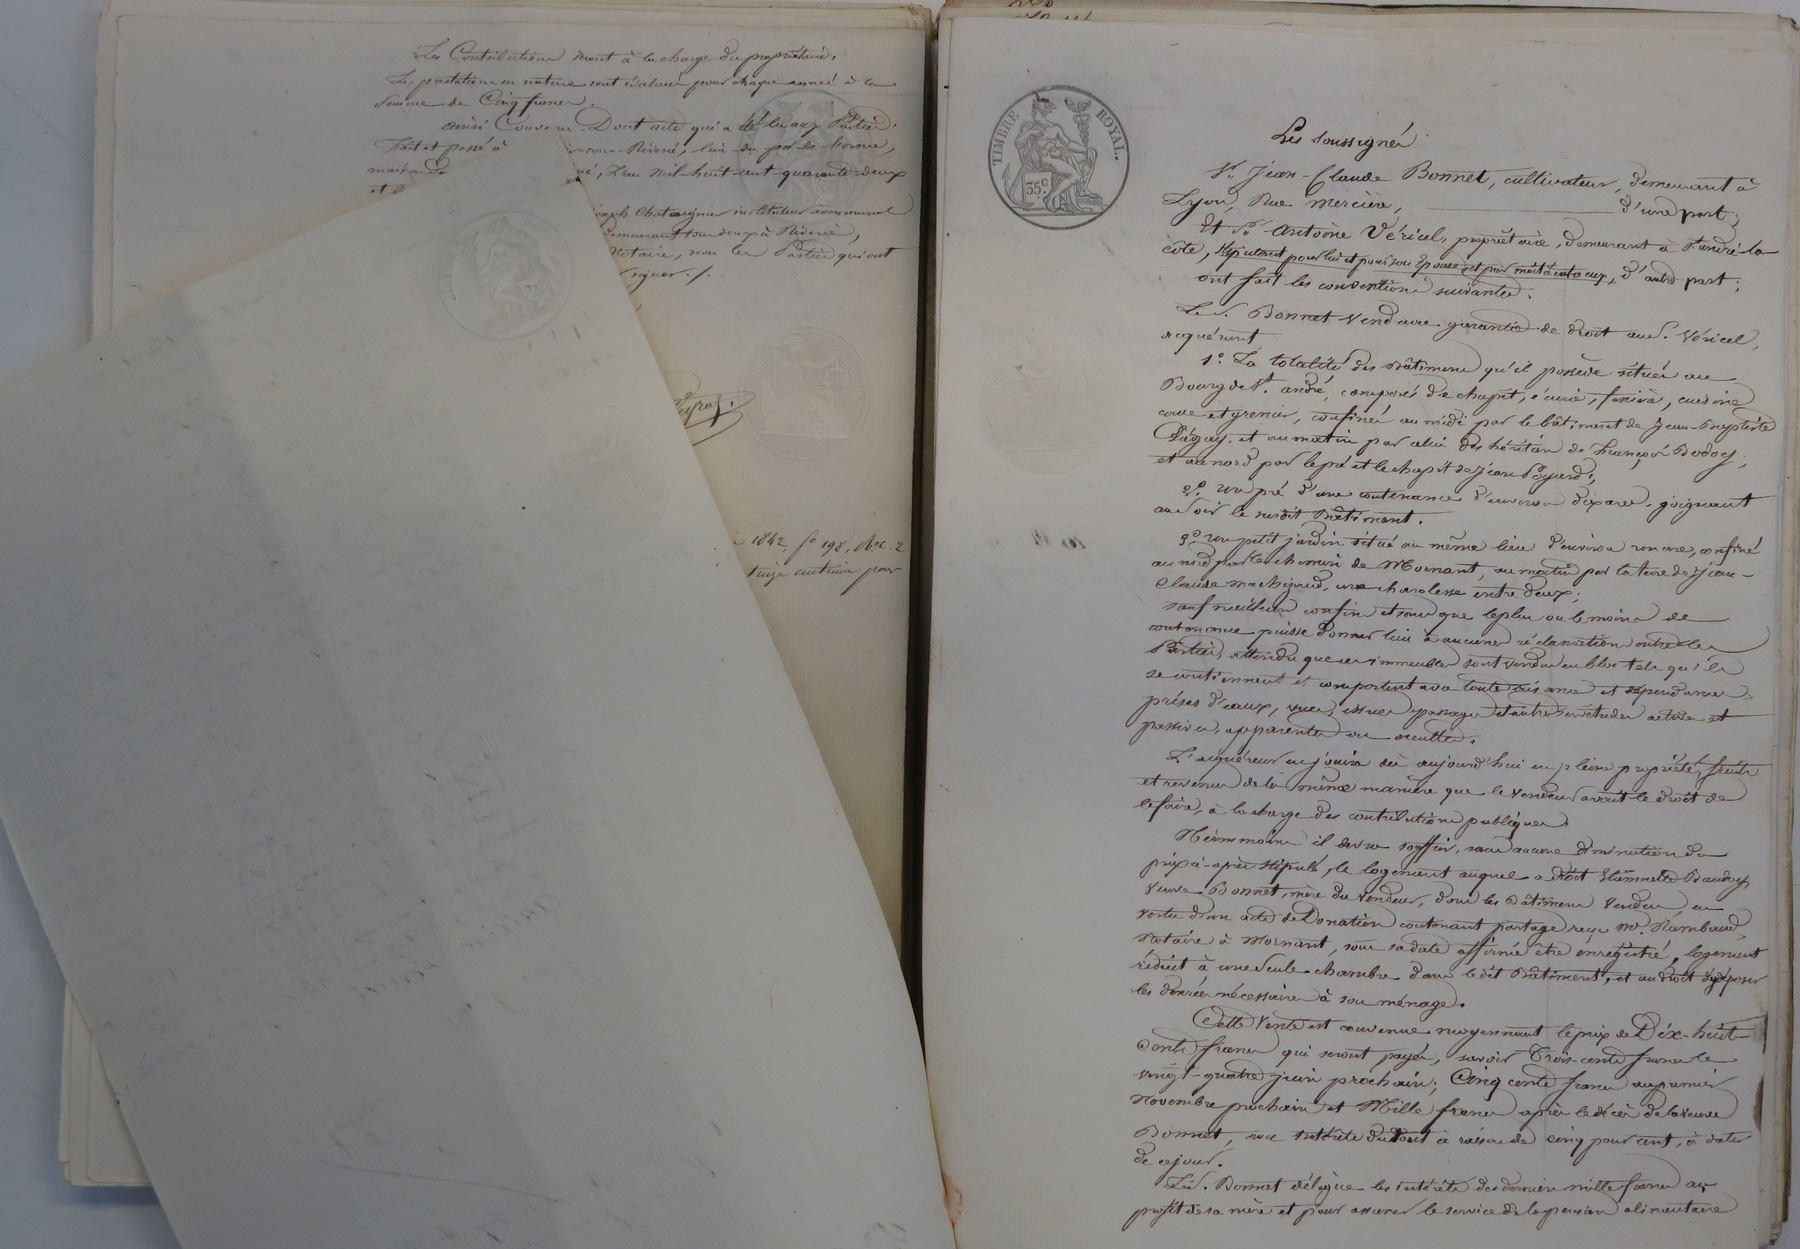 Les Contributions seront à la charge du propriétaire.
Les prestations en nature sont évaluées pour chaque année à la
somme de Cinq francs.
ainsi Convenu. Dont acte qui a été lu aux Parties.
Fait et passé à sous-Riverie, lieu du
maison de né, L'an mil huit cent quarante-deux
et
Joseph Chataignier instituteur communal
demeurant tous deux à Riverie,
Notaire, non les Parties qui ont
signer ./.
1842 f° 198,
treize centimes pour
TIMBRE ROYAL.
35 c
Les soussignés
Sr. Jean-Claude Bonnet, cultivateur, demeurant à
Lyon, Rue mercière, d'une part;
Et Sr. Antoine Véricel, propriétaire, demeurant à St. andré-la
côte, stipulant pour lui et pour son Epouse et par moitié entre eux, d'autre part;
ont fait les conventions suivantes.
Le S. Bonnet vend avec garantie de droit au S. Véricel,
acquéreur
1°. La totalité des Bâtiments qu'il possède situés au
Bourg de St. andré, composés de chapit, écurie, fenière, cuisine
cave et grenier, confinés au midi par le bâtiment de Jean-Baptiste
et au matin par celui des héritiers de François
et au nord par le pré et le chapit de Jean
2°. un pré d'une contenance d'environ dix ares, joignant
au soir le susdit Bâtiment.
3°. un petit jardin situé au même lieu d'environ un are, confiné
au nord par le chemin de Mornant, au matin par la terre de Jean-
Claude une charolesse entre deux;
sauf meilleurs confins et sans que le plus ou le moins de
contenance puisse donner lieu à aucune réclamation entre les
Parties, attendu que ces immeubles sont vendus en bloc tels qu'ils
se contiennent et comportent avec toutes aisances et dépendances,
prises d'eaux, vues, issues passages et autres servitudes actives et
passives, apparentes ou occultes.
L'acquéreur en jouira dès aujourd'hui en pleine propriété, fruits
et revenus de la même manière que le vendeur avait le droit de
le faire, à la charge des contributions publiques.
Néanmoins il devra souffrir, sans aucune diminution du
prix ci-après stipulé, le logement auquel a droit Etiennette
veuve Bonnet, mère du vendeur, dans les Bâtiments vendus, en
vertu d'un acte de Donation contenant partage reçu Me. Rambaud,
Notaire à Mornant, sous sa date affirmé être enregistré, logement
réduit à une seule chambre dans le dit Bâtiment, et au droit d'y déposer
les denrées nécessaires à son ménage.
Cette vente est convenue moyennant le prix de Dix-huit
cents francs qui seront payés, savoir Trois-cents francs le
vingt-quatre juin prochain; Cinq cents francs au premier
Novembre prochain et Mille francs après le décès de la veuve
Bonnet, avec intérêts du tout à raison de cinq pour cent, à dater
de ce jour.
Le S. Bonnet délègue les intérêts des derniers mille francs au
profit de sa mère et pour assurer le service de la pension alimentaire